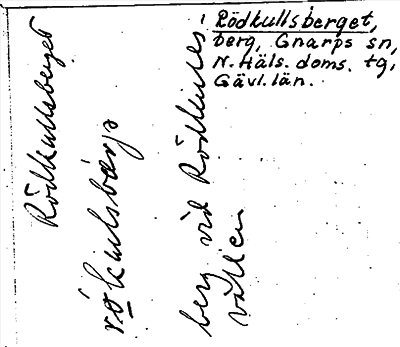 Rödkullsberget,
berg, Gnarps sn,
N. Häls. doms. tg,
Gävl. län.
Rödkullsberget
rókulsbárjə
berg vid Rödkulls-
vallen